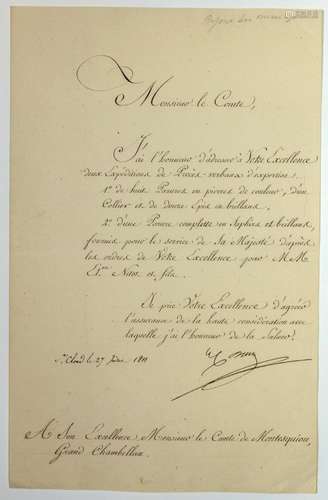 Monsieur le Comte,
J'ai l'honneur d'adresser à Votre Excellence
deux Expéditions de Procès-verbaux d'expertise.
1° de huit Parures en pierres de couleur, d'un
Collier et de douze Epis en brillans,
2° d'une Parure complette en Saphirs et brillans,
formés pour le service de Sa Majesté d'après
les ordres de Votre Excellence pour M.M.
Et.ne Nitot et fils.
Je prie Votre Excellence d'agréer
l'assurance de la haute considération avec
laquelle j'ai l'honneur de la Saluer.
St Cloud le 27 1811
A Son Excellence Monsieur le Comte de Montesquiou,
Grand Chambellan